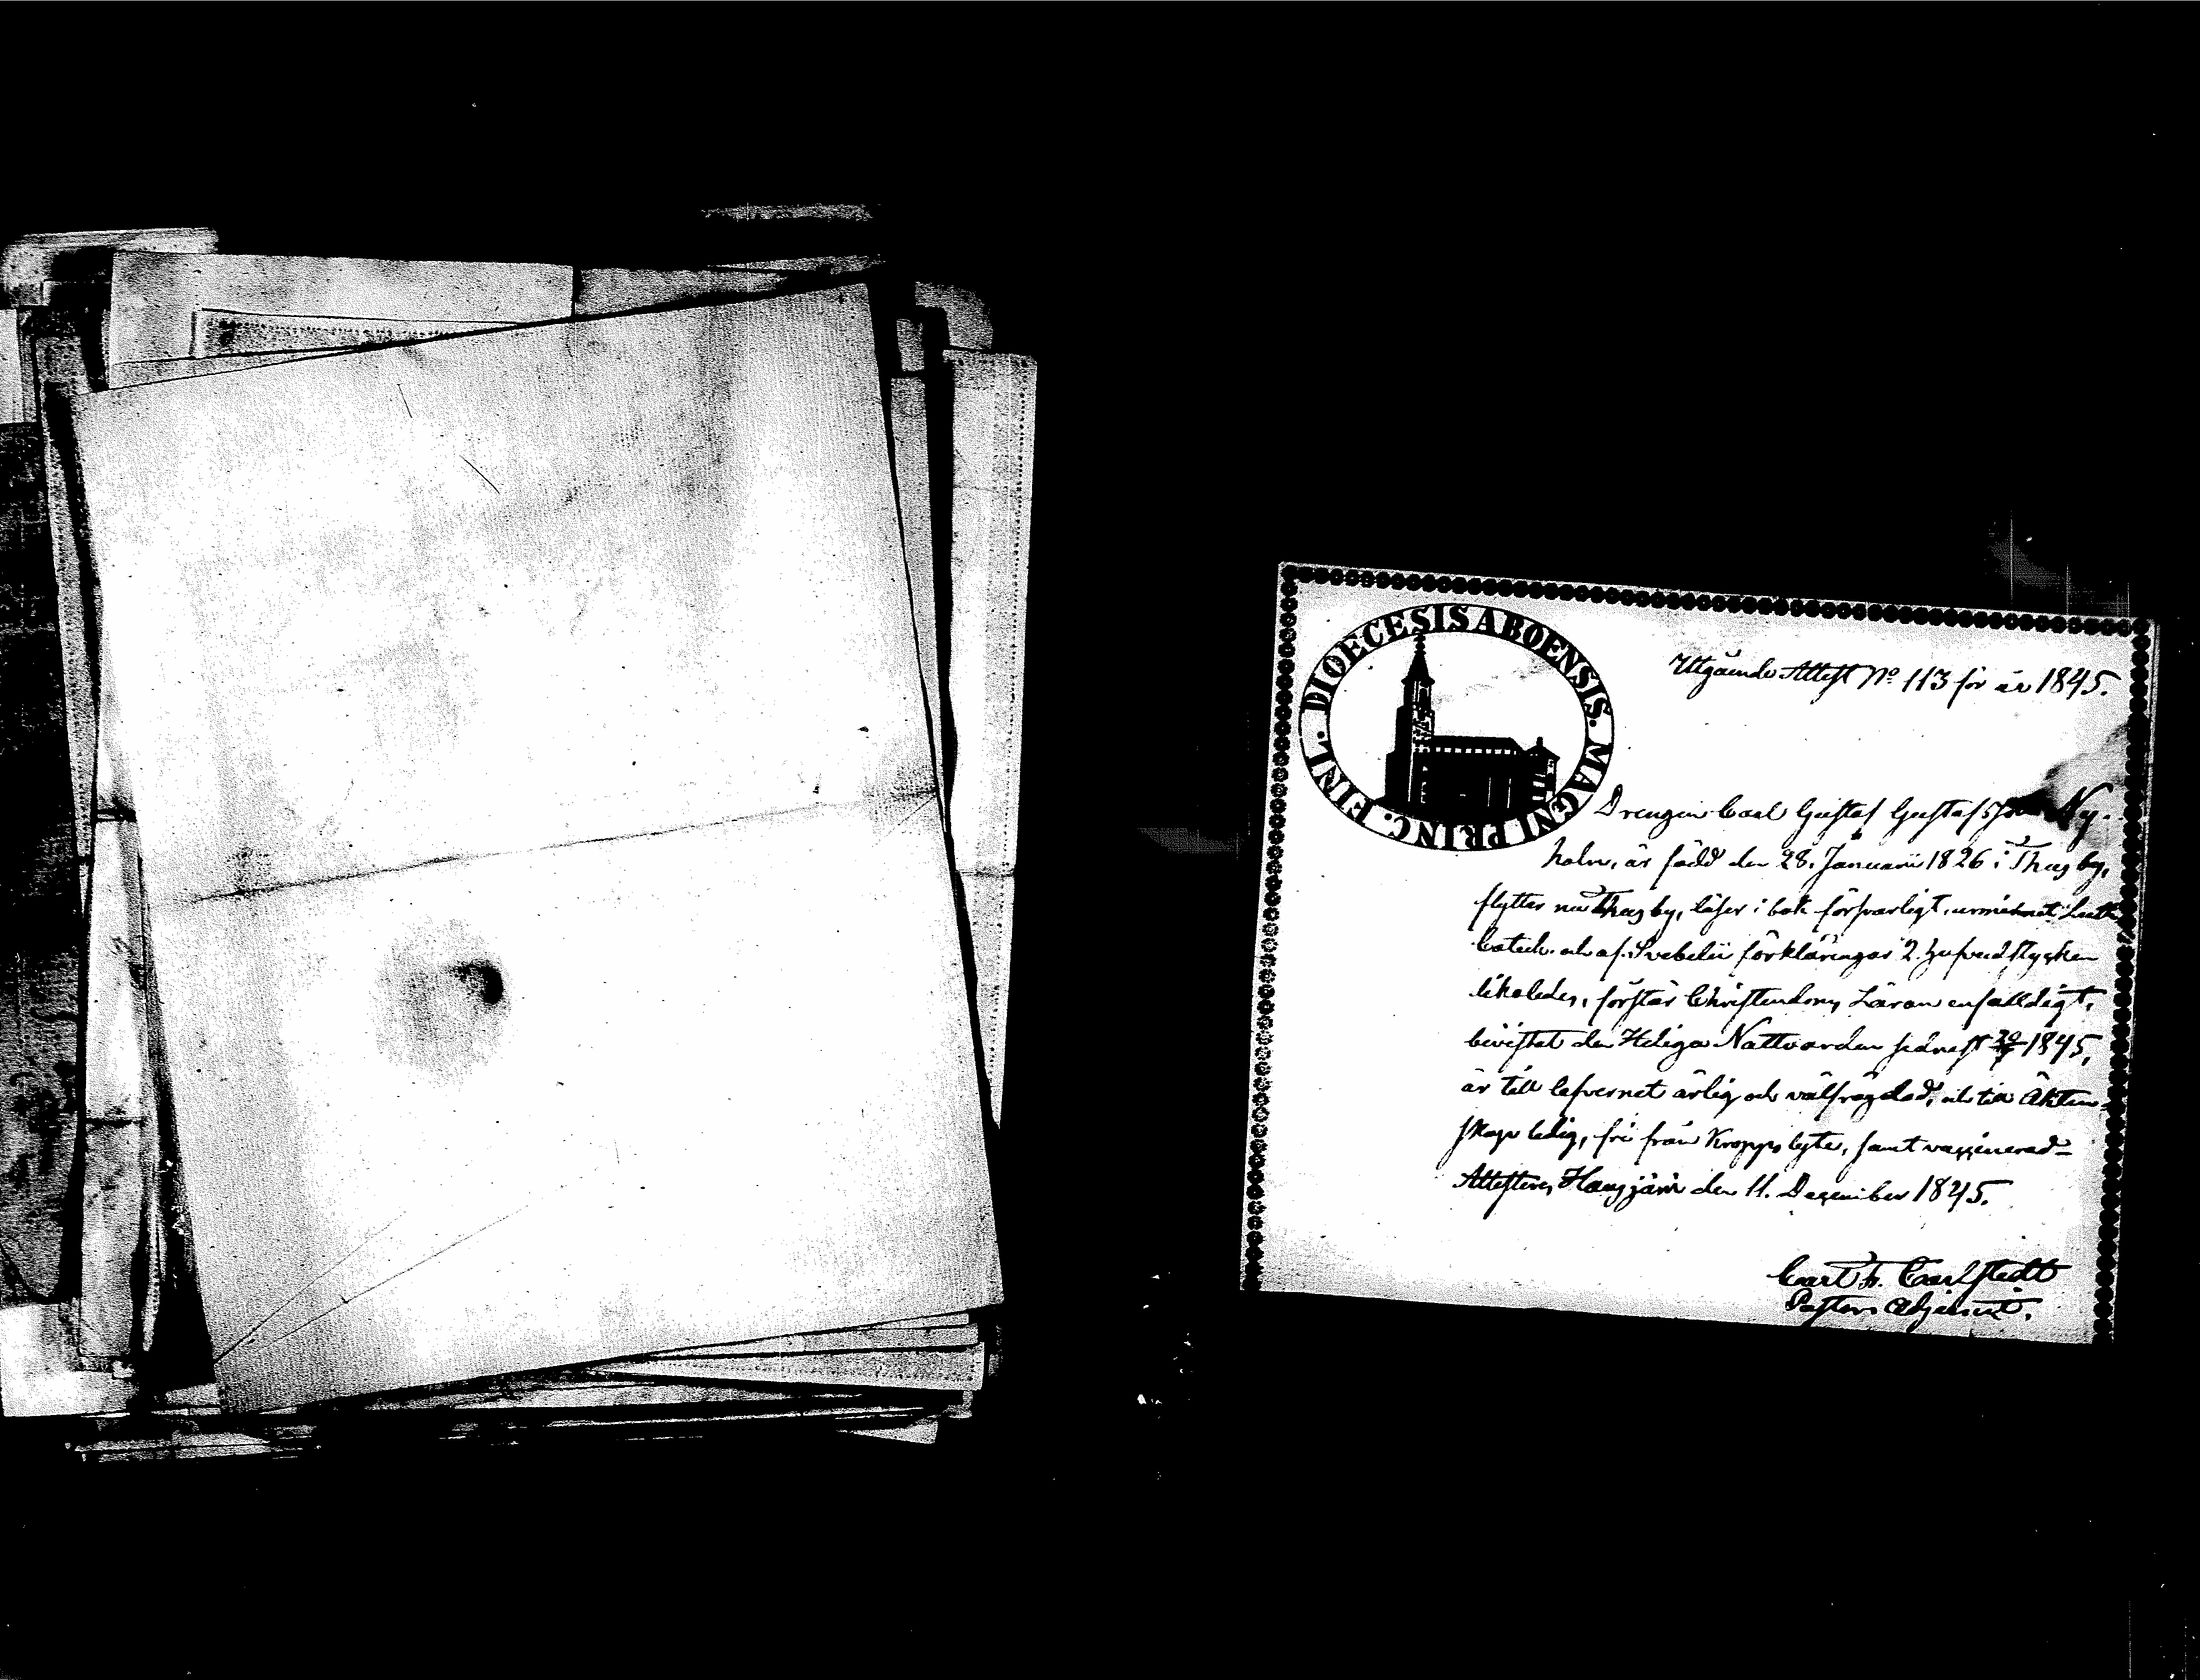 DIOECESIS ABOENSIS. MAGNI PRINC. FINL.
Utgående Attest No 113 för år 1845.
Drengen Carl Gustaf Gustafsson Ny-
holm, är född den 28. Januarii 1826 i Thusby,
flyttar nu Thusby, läser i bok försvarligt, urminnet Luth
Catech. och af Svebelii förklaringar 2. hufvudstycken
likaledes, förstår Christendoms Läran enfalldigt,
bevistat den Heliga Nattvarden sednast 1845,
är till lefvernet ärlig och välfrägdad, och till Äkten-
skap ledig, fri från Kropps lyte, samt vaccinerad
Attesteras Hausjärvi den 11. December 1845.
Carl Fr. Carlstedt
Pastors Adjunct.